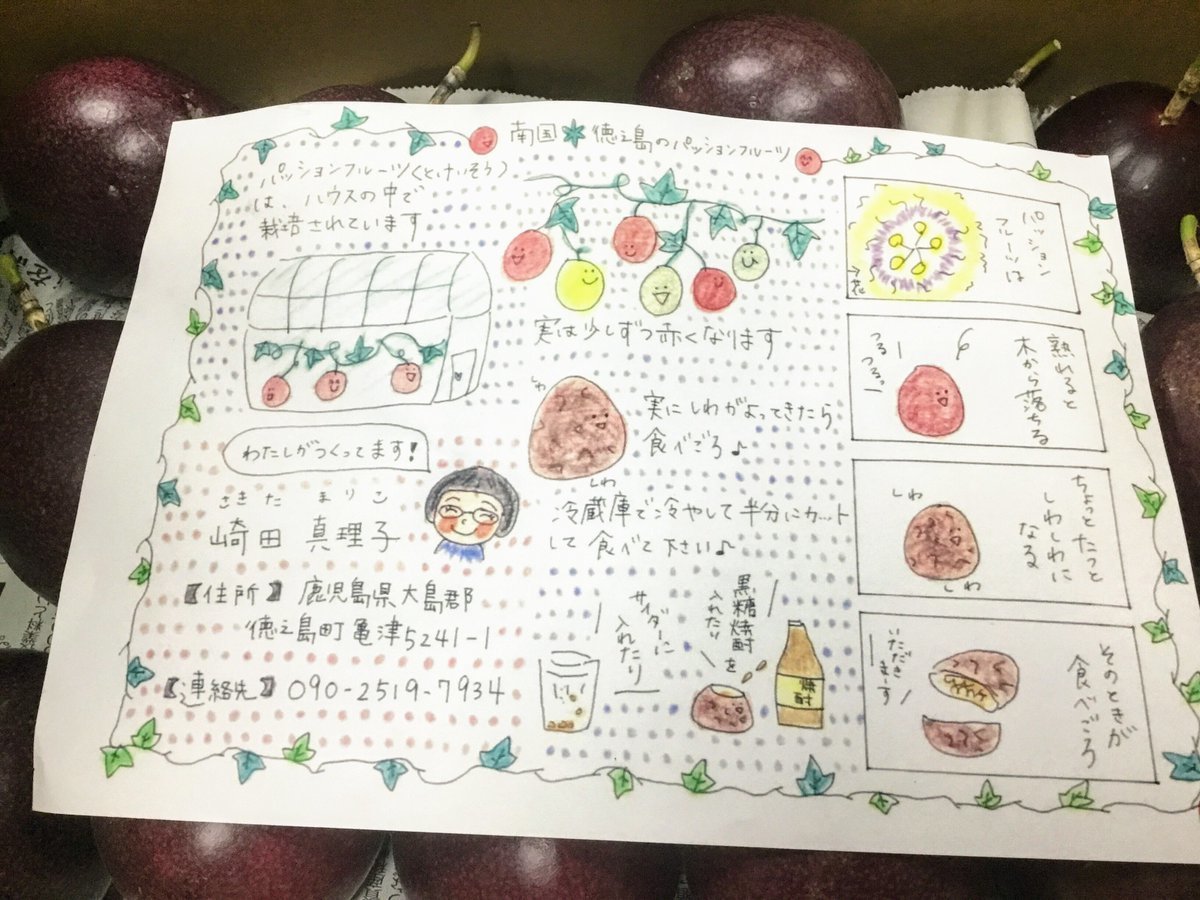 南国＊徳之島のパッションフルーツ
パッションフルーツ(とけいそう)
は、ハウスの中で
栽培されています
実は少しずつ赤くなります
しわ
しわ
実にしわがよってきたら
食べごろ♪
冷蔵庫で冷やして半分にカット
して食べて下さい♪
サイダーに
入れたり
黒糖焼酎を
入れたり
焼酎
わたしがつくってます!
さきた まりこ
崎田 真理子
【住所】鹿児島県大島郡
徳之島町亀津5241-1
【連絡先】090-2519-7934
パッション
フルーツは
花
熟れると
木から落ちる
つるつるっー
ちょっとたつと
しわしわに
なる
しわ
しわ
そのときが
食べごろ
いただき
ます